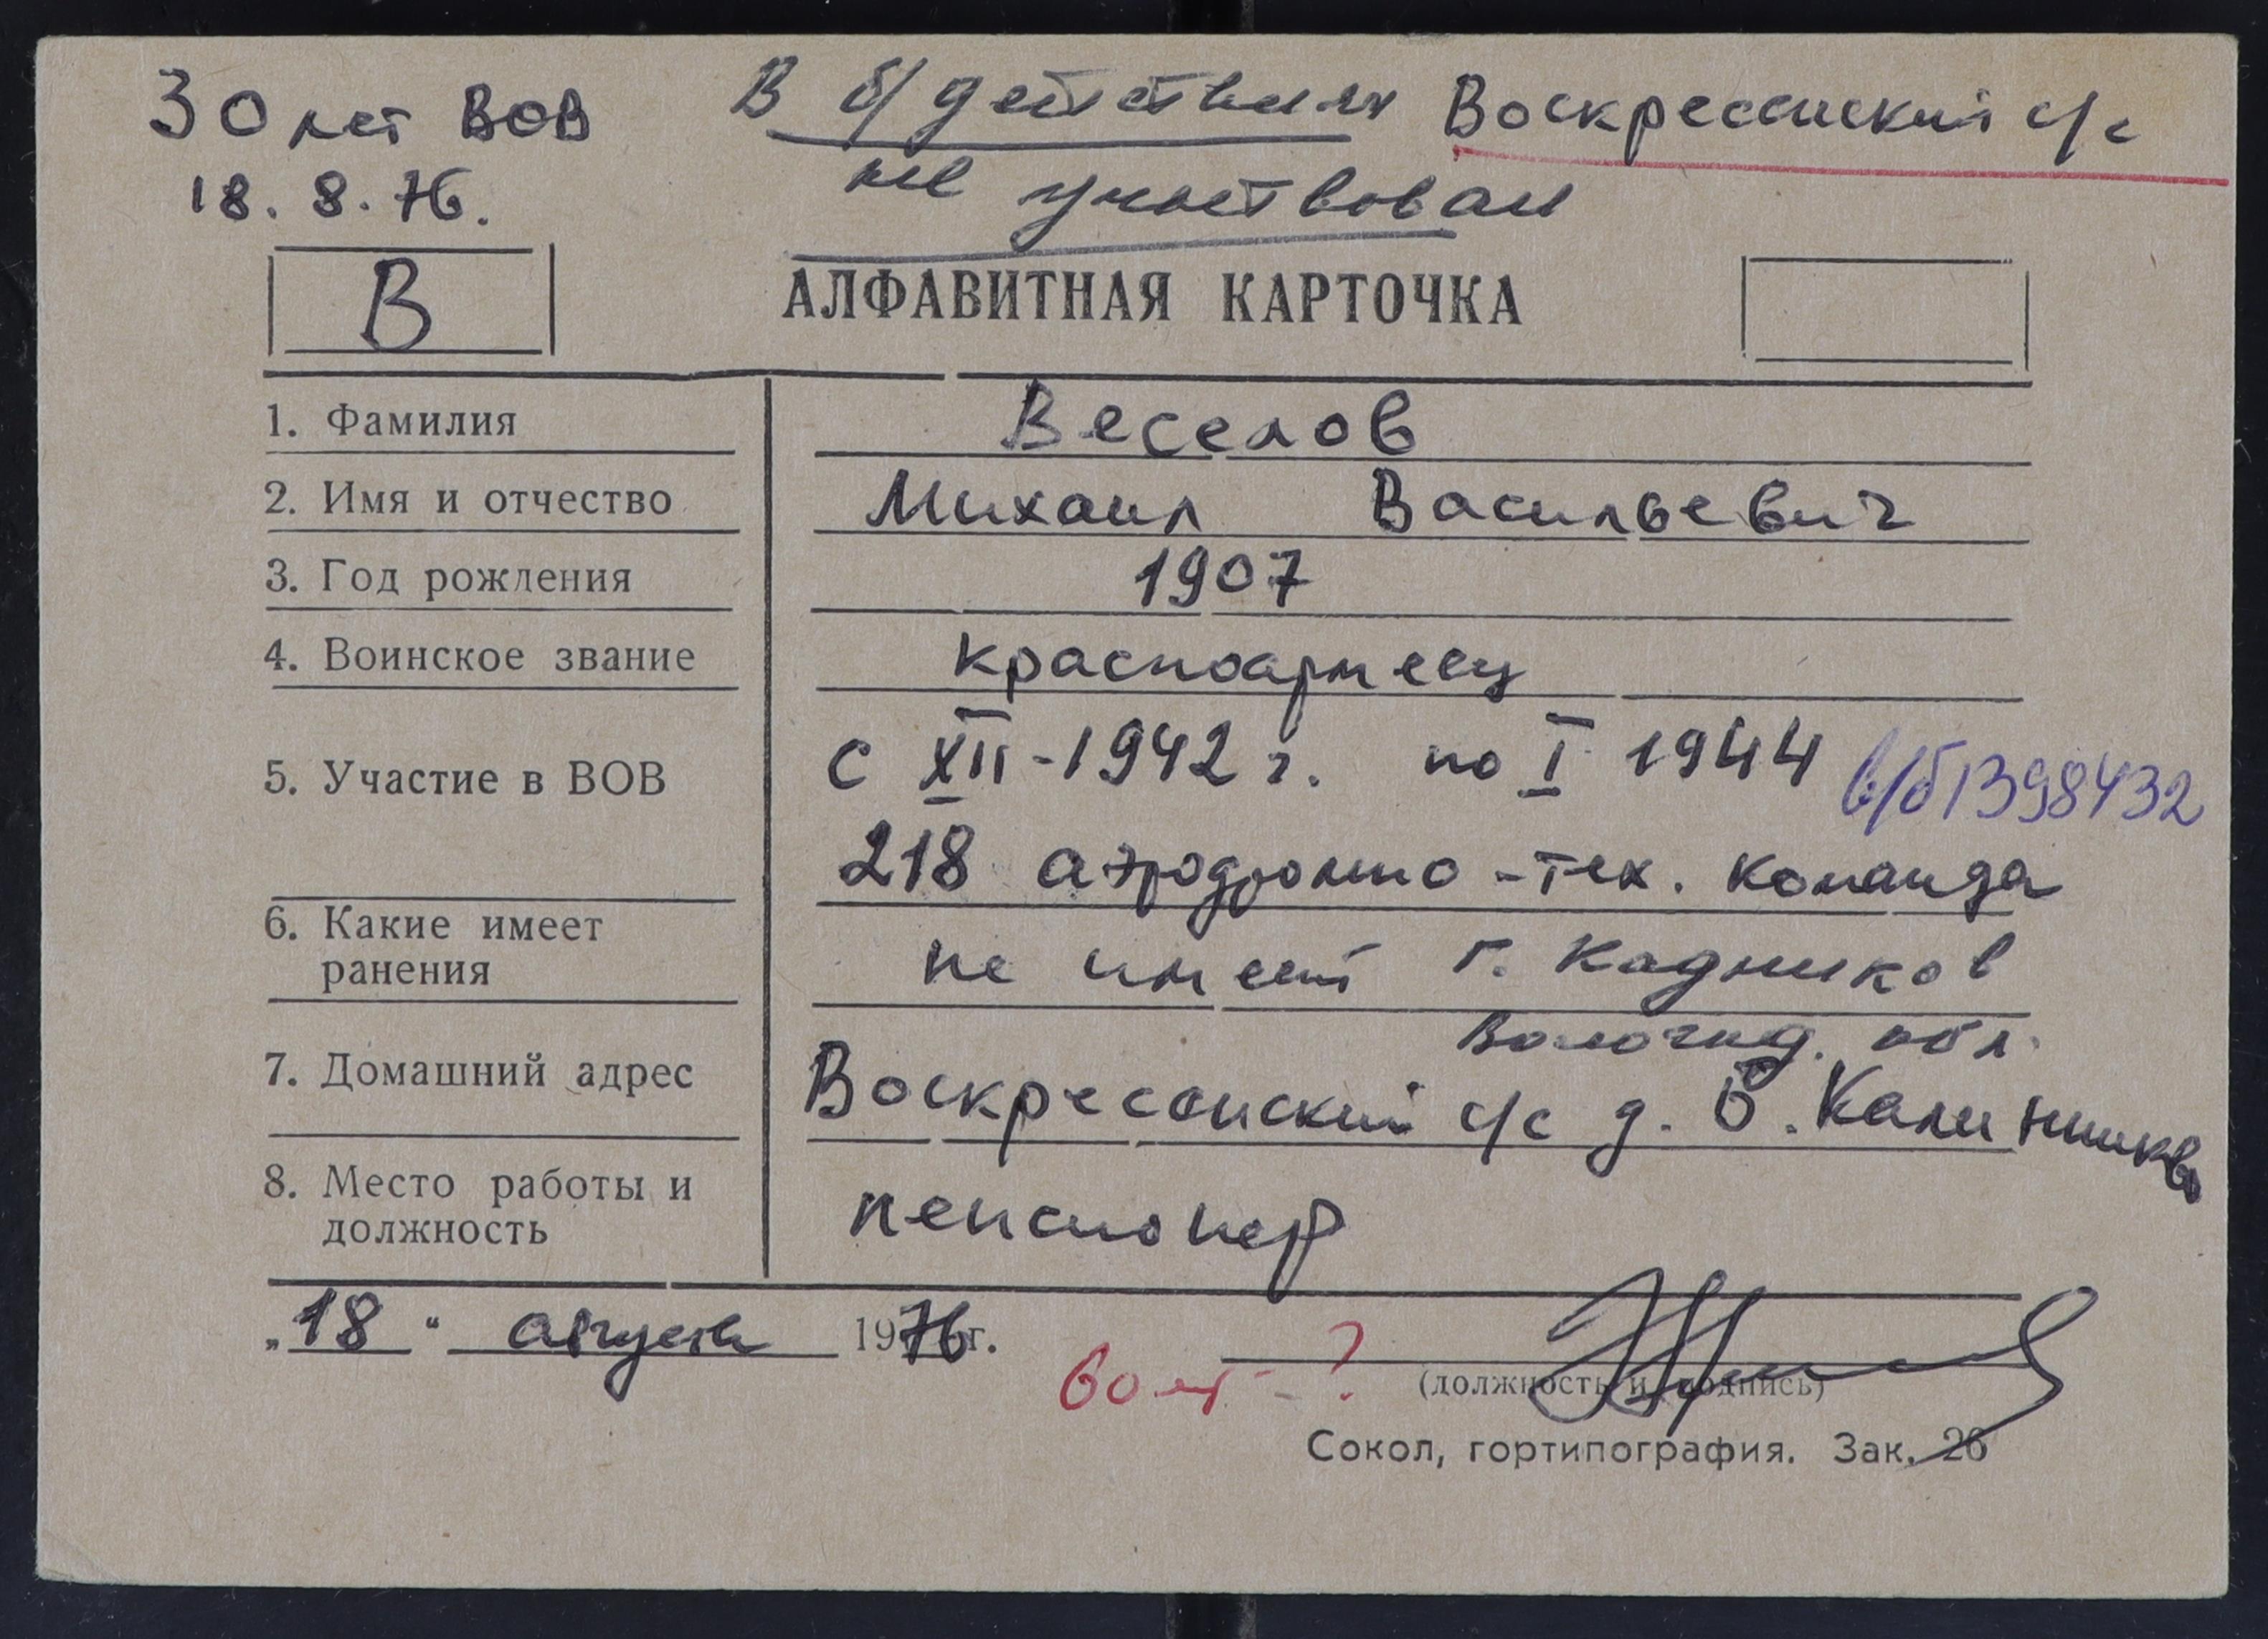 30 лет ВОВ В б/действиях Воскресенский с/с
18.8.76. не участвовал
В АЛФАВИТНАЯ КАРТОЧКА
1. Фамилия Веселов
2. Имя и отчество Михаил Васильевич
3. Год рождения 1907
4. Воинское звание красноармеец
5. Участие в ВОВ с XII-1942 г. по I 1944 в/б 1398432
218 аэродромно-тех. команда
6. Какие имеет
ранения не имеет г. Кадников
Вологод. обл.
7. Домашний адрес Воскресенский с/с д. Б. Калинниково
8. Место работы и
должность пенсионер
„18“ августа 1976 г.
(должность и подпись)
Сокол, гортипография. Зак. 26